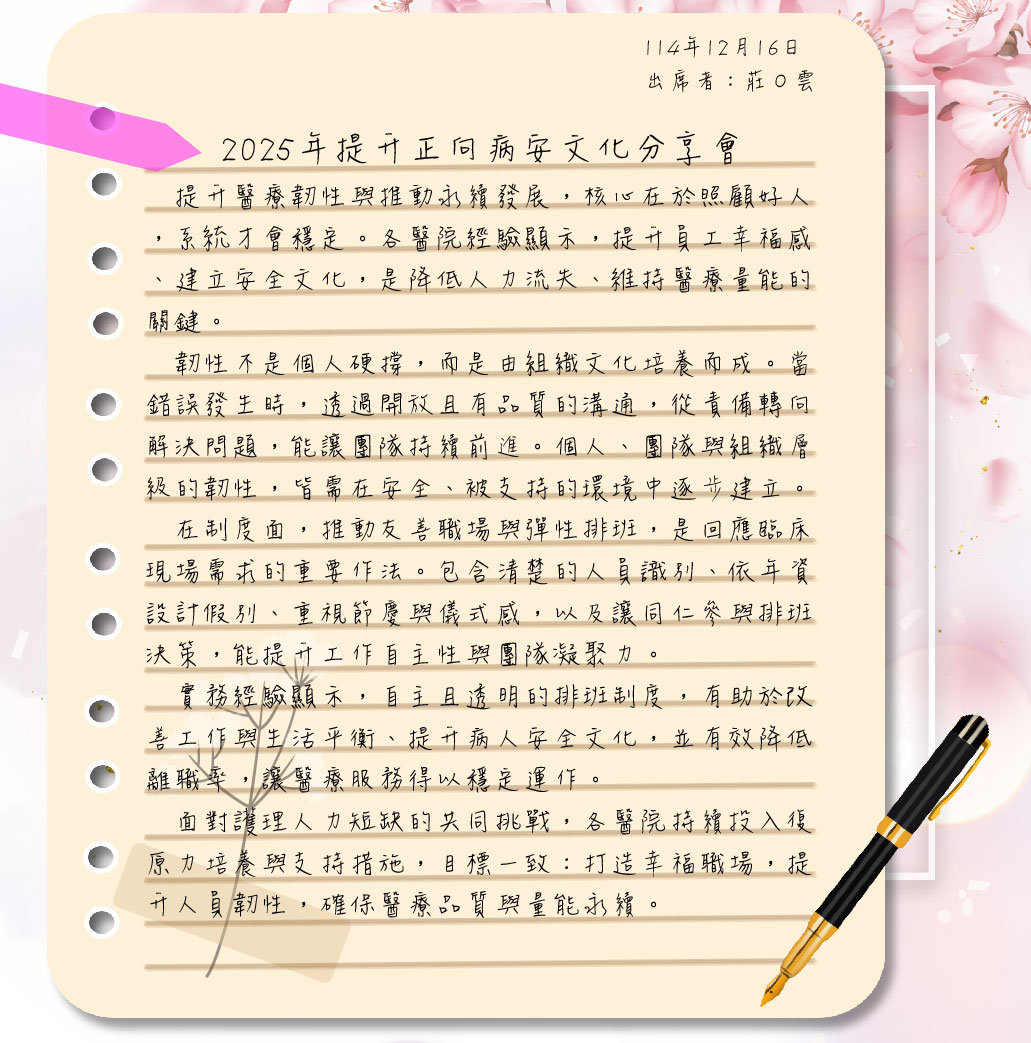 114年12月16日
出席者：莊O雲
2025年提升正向病安文化分享會
提升醫療韌性與推動永續發展，核心在於照顧好人
，系統才會穩定。各醫院經驗顯示，提升員工幸福感
、建立安全文化，是降低人力流失、維持醫療量能的
關鍵。
韌性不是個人硬撐，而是由組織文化培養而成。當
錯誤發生時，透過開放且有品質的溝通，從責備轉向
解決問題，能讓團隊持續前進。個人、團隊與組織層
級的韌性，皆需在安全、被支持的環境中逐步建立。
在制度面，推動友善職場與彈性排班，是回應臨床
現場需求的重要作法。包含清楚的人員識別、依年資
設計假別、重視節慶與儀式感，以及讓同仁參與排班
決策，能提升工作自主性與團隊凝聚力。
實務經驗顯示，自主且透明的排班制度，有助於改
善工作與生活平衡、提升病人安全文化，並有效降低
離職率，讓醫療服務得以穩定運作。
面對護理人力短缺的共同挑戰，各醫院持續投入復
原力培養與支持措施，目標一致：打造幸福職場，提
升人員韌性，確保醫療品質與量能永續。